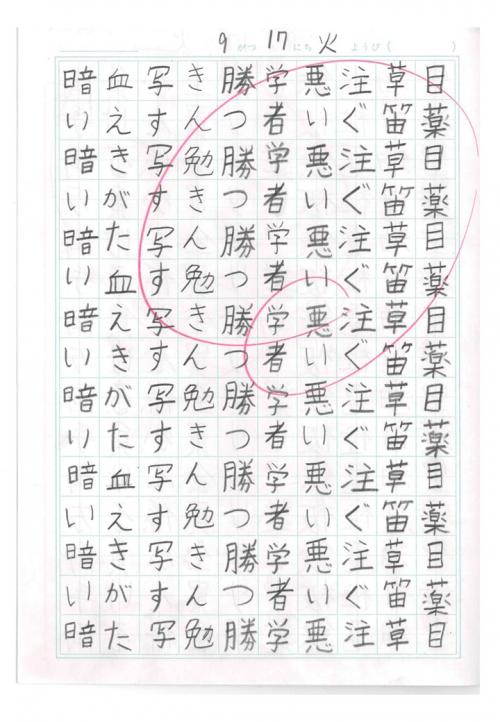 9 がつ 17 にち 火 ようび ( )
目薬目薬目薬目薬目薬目薬目薬目
草笛草笛草笛草笛草笛草笛草笛草
注ぐ注ぐ注ぐ注ぐ注ぐ注ぐ注ぐ注
悪い悪い悪い悪い悪い悪い悪い悪
学者学者学者学者学者学者学者学
勝つ勝つ勝つ勝つ勝つ勝つ勝つ勝
きん勉きん勉きん勉きん勉きん勉
写す写す写す写す写す写す写す写
血えきがた血えきがた血えきがた
暗い暗い暗い暗い暗い暗い暗い暗